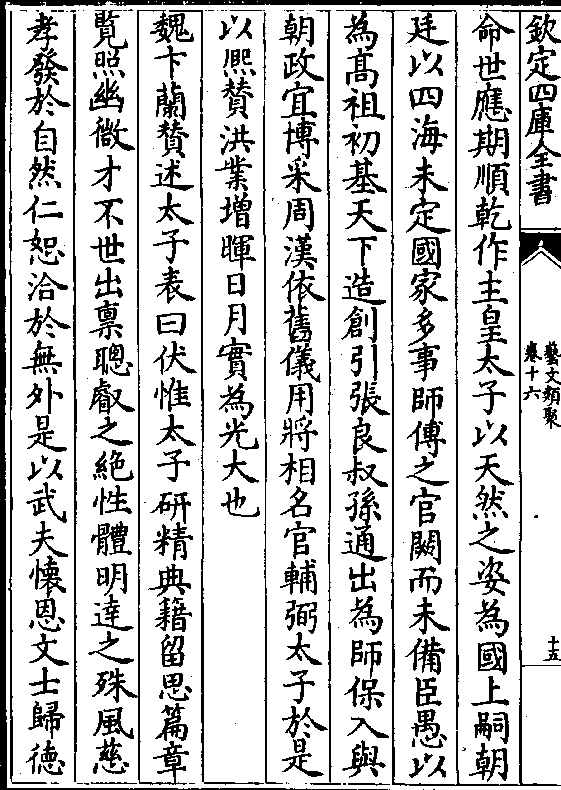 欽定四庫全書
藝文類聚
卷十六
十五
命世應期順乾作主皇太子以天然之姿為國上嗣朝
廷以四海未定國家多事師傅之官闕而未備臣愚以
為高祖初基天下造創引張良叔孫通出為師保入與
朝政宜博采周漢依舊儀用將相名官輔弼太子於是
以熙贊洪業增暉日月實為光大也
魏卞蘭贊述太子表曰伏惟太子研精典籍留思篇章
覽照幽微才不世出禀聰叡之絶性體明達之殊風慈
孝發於自然仁恕洽於無外是以武夫懷恩文士歸德